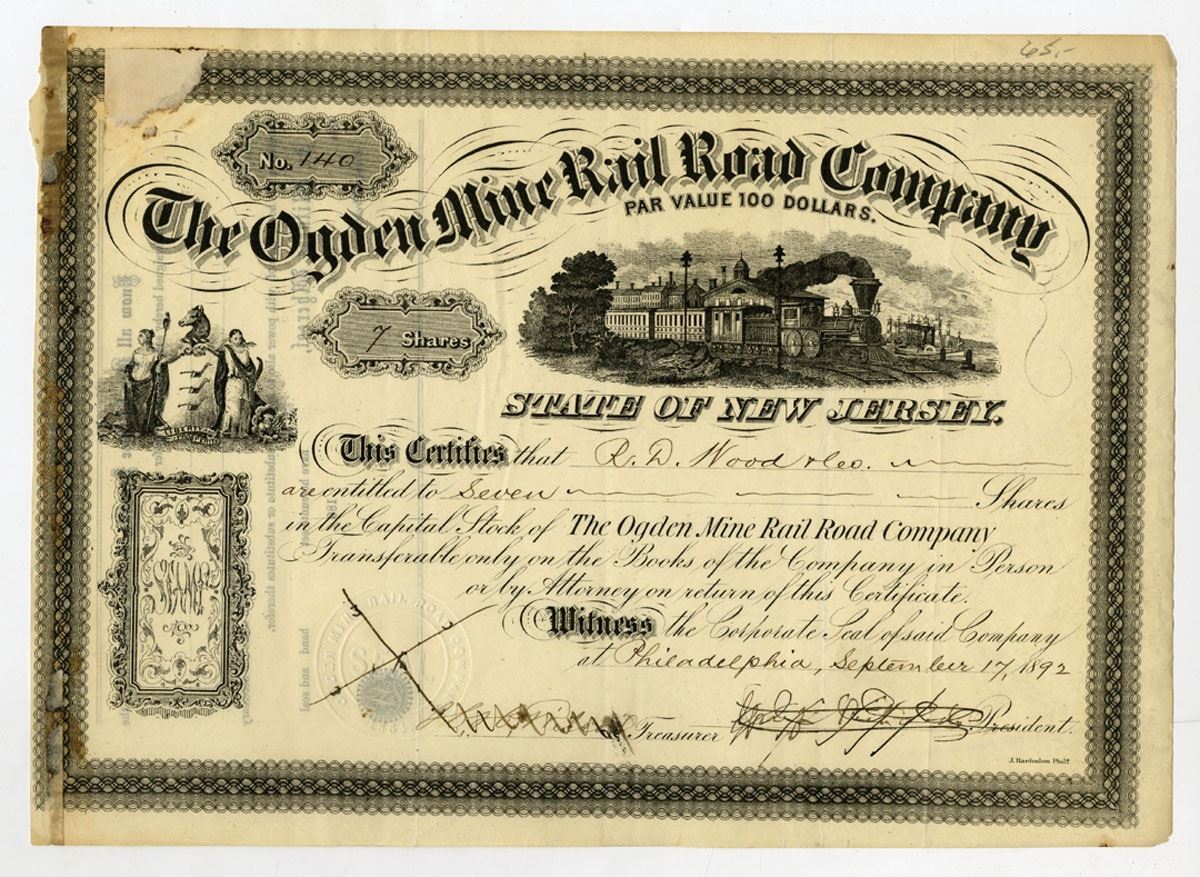 65.-
No. 140
The Ogden Mine Rail Road Company
PAR VALUE 100 DOLLARS.
7 Shares
STATE OF NEW JERSEY.
This Certifies that R. D. Wood & Co.
are entitled to Seven Shares
in the Capital Stock of The Ogden Mine Rail Road Company
Transferable only on the Books of the Company in Person
or by Attorney on return of this Certificate.
Witness the Corporate Seal of said Company
at Philadelphia, September 17, 1892
Treasurer President.